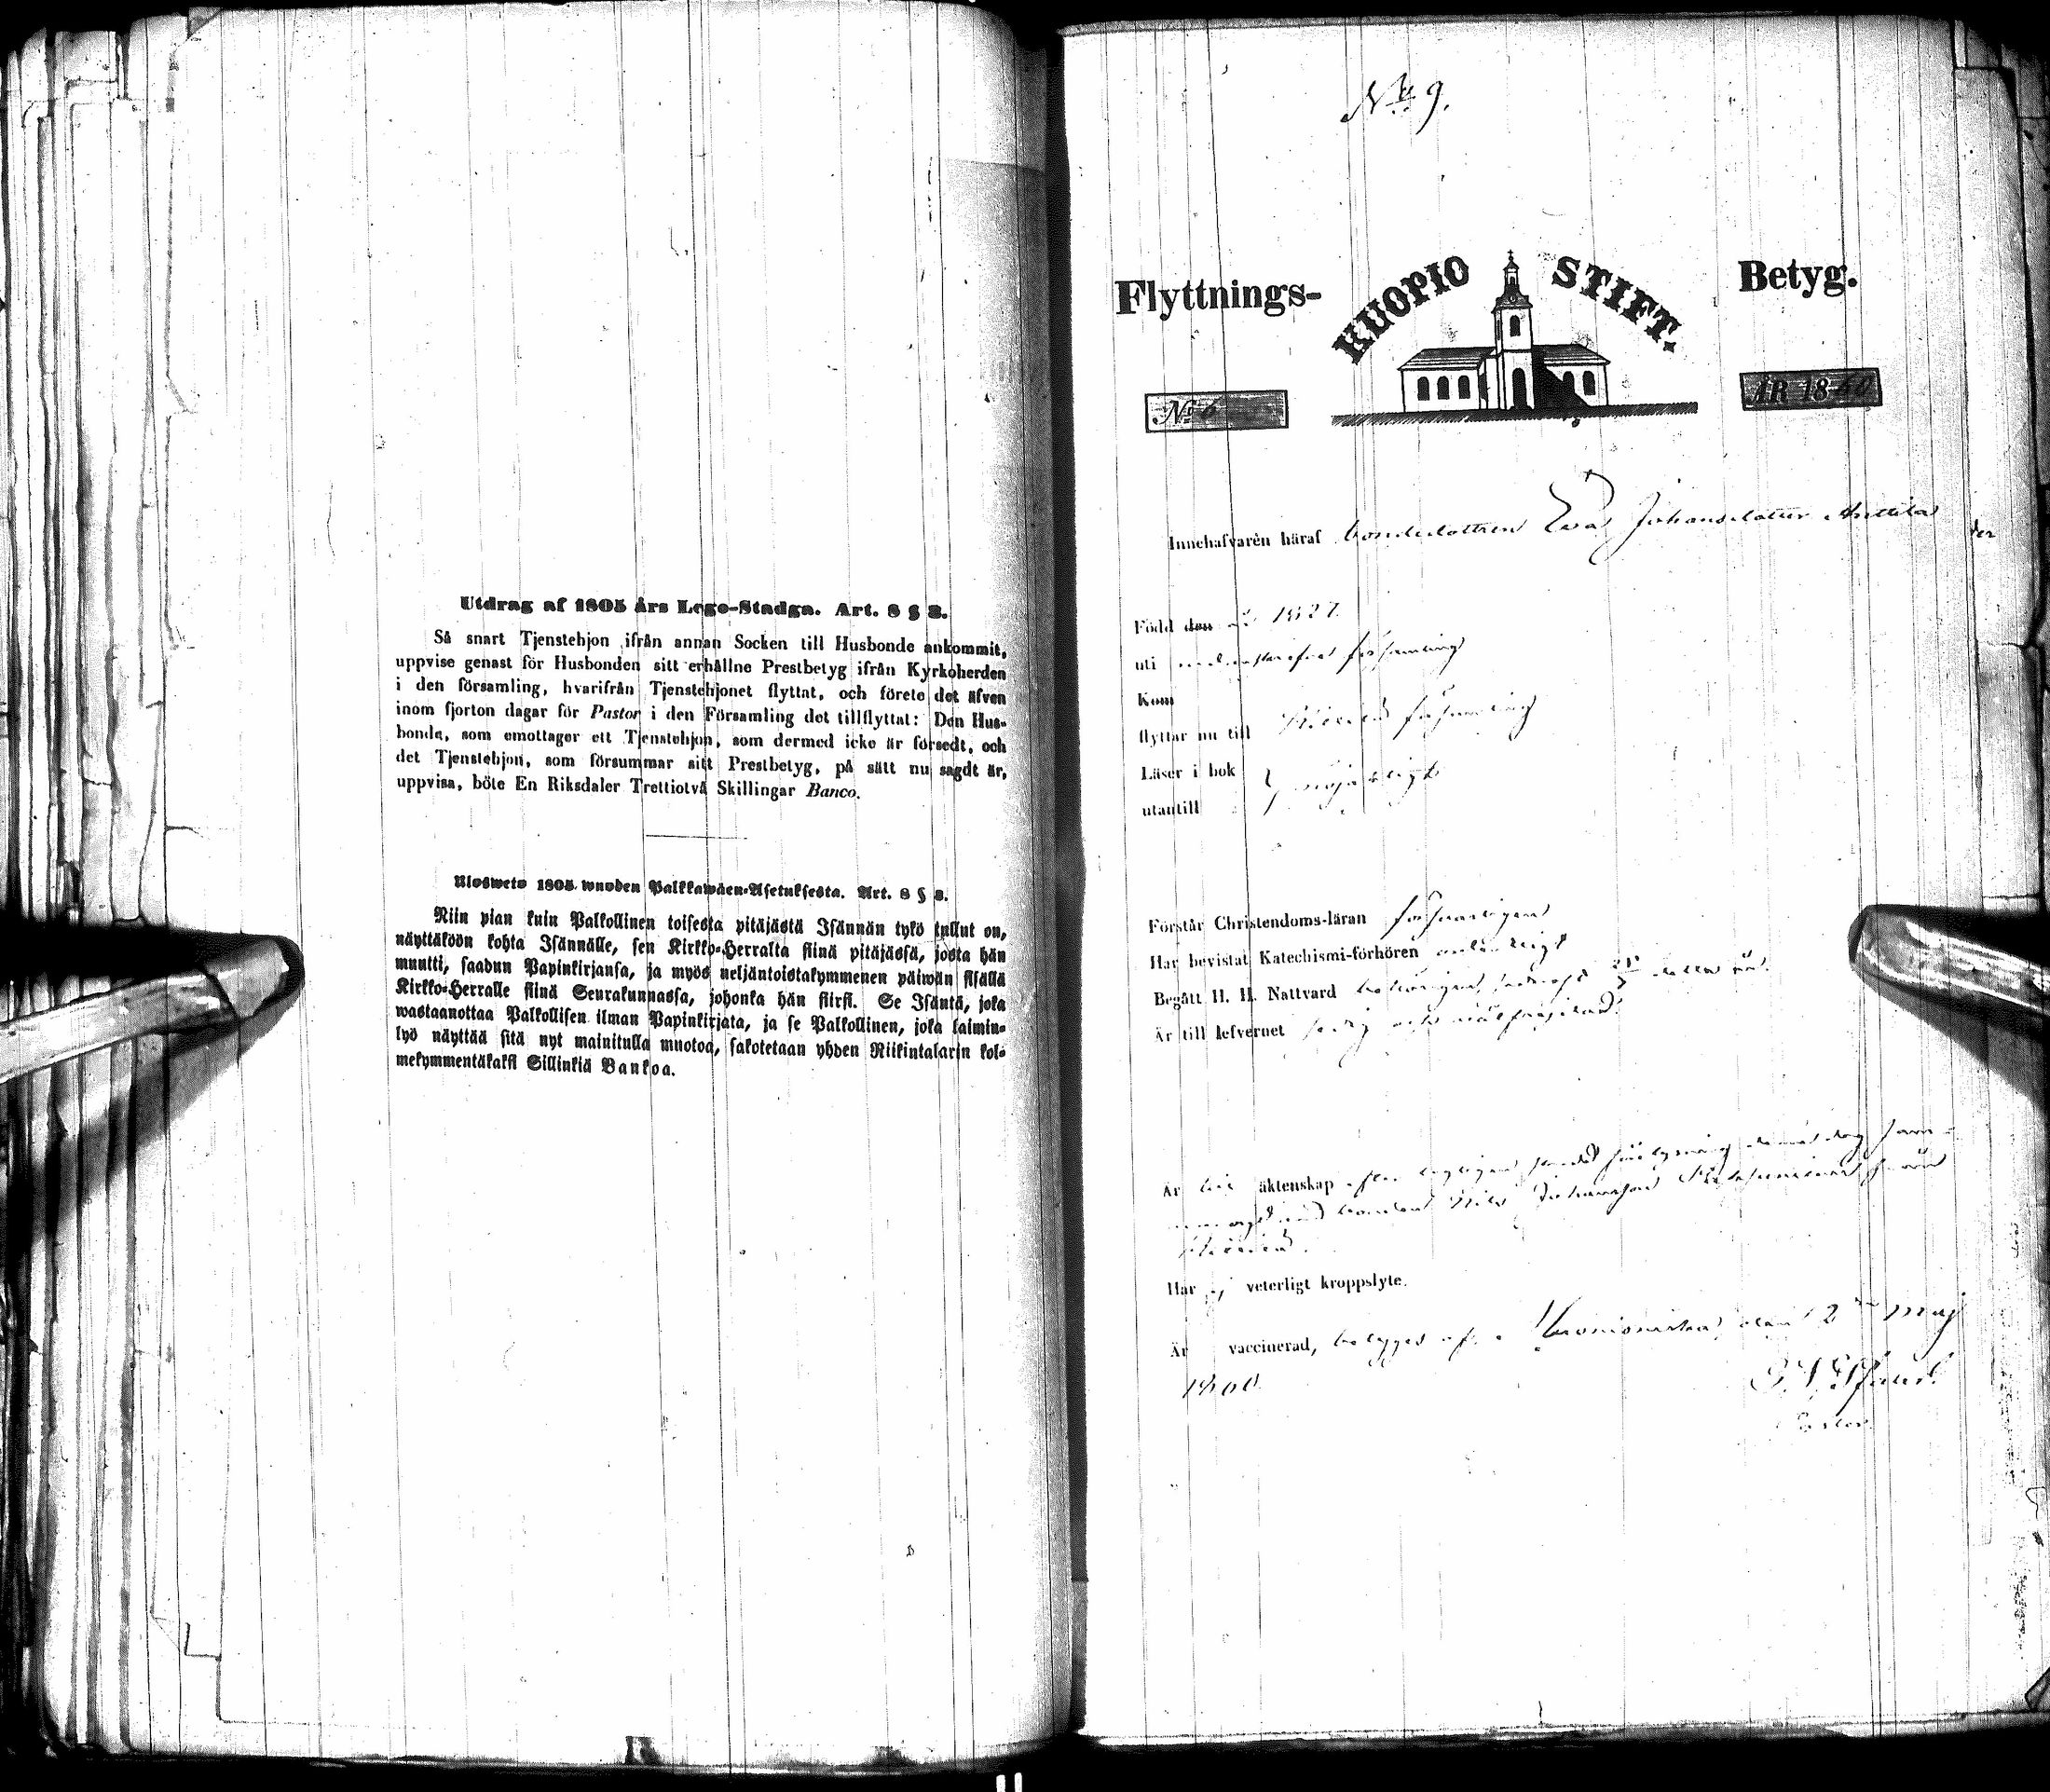 Utdrag af 1805 års Lego-Stadga. Art. 8 § 3.
Så snart Tjenstehjon ifrån annan Socken till Husbonde ankommit,
uppvise genast för Husbonden sitt erhållne Prestbetyg ifrån Kyrkoherden
i den församling, hvarifrån Tjenstehjonet flyttat, och förete det äfven
inom fjorton dagar för Pastor i den Församling det tillflyttat: Den Hus-
bonde, som emottager ett Tjenstehjon, som dermed icke är försedt, och
det Tjenstehjon, som försummar sitt Prestbetyg, på sätt nu sagdt är,
uppvisa, böte En Riksdaler Trettiotvå Skillingar Banco.
Ulosweto 1805 wuoden Palkkawäen-Asetuksesta. Art. 8 § 3.
Niin pian kuin Palkollinen toisesta pitäjästä Isännän tykö tullut on,
näyttäköön kohta Isännälle, sen Kirkko-Herralta siinä pitäjässä, josta hän
muutti, saadun Papinkirjansa, ja myös neljäntoistakymmenen päiwän sisällä
Kirkko-Herralle siinä Seurakunnassa, johonka hän siirsi. Se Isäntä, joka
wastaanottaa Palkollisen ilman Papinkirjata, ja se Palkollinen, joka laimin-
lyö näyttää sitä nyt mainitulla muotoa, sakotetaan yhden Riikintalarin kol-
mekymmentäkaksi Sillinkiä Bankoa.
No 9.
Flyttnings- KUOPIO STIFT. Betyg.
No 6 ÅR 1860
Innehafvaren häraf bondedottren Eva Johansdotter Anttila
Född den år 1827
uti församling
Kom
flyttar nu till församling
Läser i bok
utantill nöjaktigt
Förstår Christendoms-läran försvarligen
Har bevistat Katechismi-förhören ordentligt
Begått H. H. Nattvard behörigen, sednast detta år.
Är till lefvernet och välfrejdad.
Är äktenskap efter lagligen skedd lysning
med bonden Nils Johansson från
Har ej veterligt kroppslyte.
Är vaccinerad, betygas af. Muonioniska den 2 maj
1860.
Pastor.